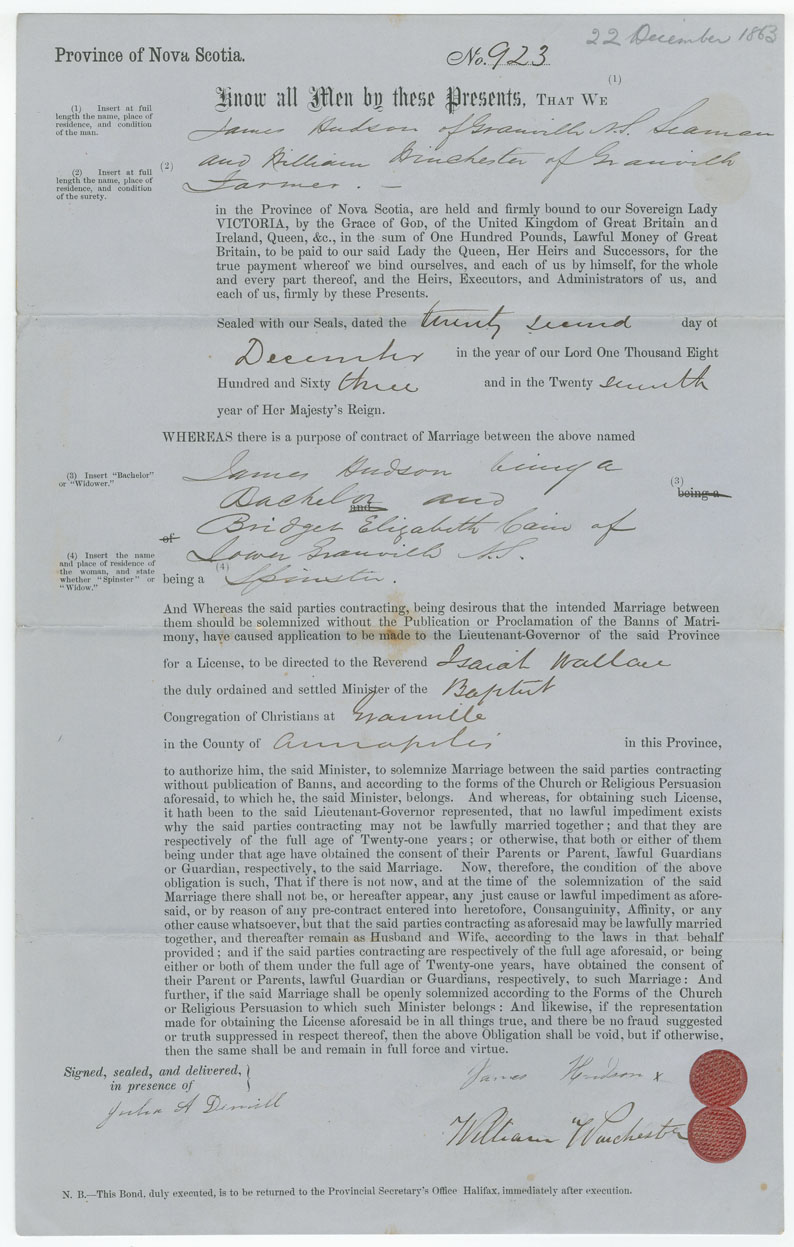 22 December 1863
Province of Nova Scotia.
No. 923
(1)
Know all Men by these Presents, THAT WE
(1) Insert at full
length the name, place of
residence, and condition
of the man.
James Hudson of Granville N.S. Seaman
(2)
and William Winchester of Granville
Farmer. —
(2) Insert at full
length the name, place of
residence, and condition
of the surety.
in the Province of Nova Scotia, are held and firmly bound to our Sovereign Lady
VICTORIA, by the Grace of GOD, of the United Kingdom of Great Britain and
Ireland, Queen, &c., in the sum of One Hundred Pounds, Lawful Money of Great
Britain, to be paid to our said Lady the Queen, Her Heirs and Successors, for the
true payment whereof we bind ourselves, and each of us by himself, for the whole
and every part thereof, and the Heirs, Executors, and Administrators of us, and
each of us, firmly by these Presents.
Sealed with our Seals, dated the twenty second day of
December in the year of our Lord One Thousand Eight
Hundred and Sixty three and in the Twenty seventh
year of Her Majesty's Reign.
WHEREAS there is a purpose of contract of Marriage between the above named
(3) Insert "Bachelor"
or "Widower."
James Hudson being a
(3)
being a
Bachelor and
and
of
Bridget Elizabeth Cain of
Lower Granville N.S.
(4) Insert the name
and place of residence of
the woman, and state
whether "Spinster" or
"Widow."
(4)
being a Spinster.
And Whereas the said parties contracting, being desirous that the intended Marriage between
them should be solemnized without the Publication or Proclamation of the Banns of Matri-
mony, have caused application to be made to the Lieutenant-Governor of the said Province
for a License, to be directed to the Reverend Isaiah Wallace
the duly ordained and settled Minister of the Baptist
Congregation of Christians at Granville
in the County of Annapolis in this Province,
to authorize him, the said Minister, to solemnize Marriage between the said parties contracting
without publication of Banns, and according to the forms of the Church or Religious Persuasion
aforesaid, to which he, the said Minister, belongs. And whereas, for obtaining such License,
it hath been to the said Lieutenant-Governor represented, that no lawful impediment exists
why the said parties contracting may not be lawfully married together; and that they are
respectively of the full age of Twenty-one years; or otherwise, that both or either of them
being under that age have obtained the consent of their Parents or Parent, lawful Guardians
or Guardian, respectively, to the said Marriage. Now, therefore, the condition of the above
obligation is such, That if there is not now, and at the time of the solemnization of the said
Marriage there shall not be, or hereafter appear, any just cause or lawful impediment as afore-
said, or by reason of any pre-contract entered into heretofore, Consanguinity, Affinity, or any
other cause whatsoever, but that the said parties contracting as aforesaid may be lawfully married
together, and thereafter remain as Husband and Wife, according to the laws in that behalf
provided; and if the said parties contracting are respectively of the full age aforesaid, or being
either or both of them under the full age of Twenty-one years, have obtained the consent of
their Parent or Parents, lawful Guardian or Guardians, respectively, to such Marriage: And
further, if the said Marriage shall be openly solemnized according to the Forms of the Church
or Religious Persuasion to which such Minister belongs: And likewise, if the representation
made for obtaining the License aforesaid be in all things true, and there be no fraud suggested
or truth suppressed in respect thereof, then the above Obligation shall be void, but if otherwise,
then the same shall be and remain in full force and virtue.
Signed, sealed, and delivered,
in presence of
James Hudson x
Julia A
William Winchester
N. B.—This Bond, duly executed, is to be returned to the Provincial Secretary's Office Halifax, immediately after execution.